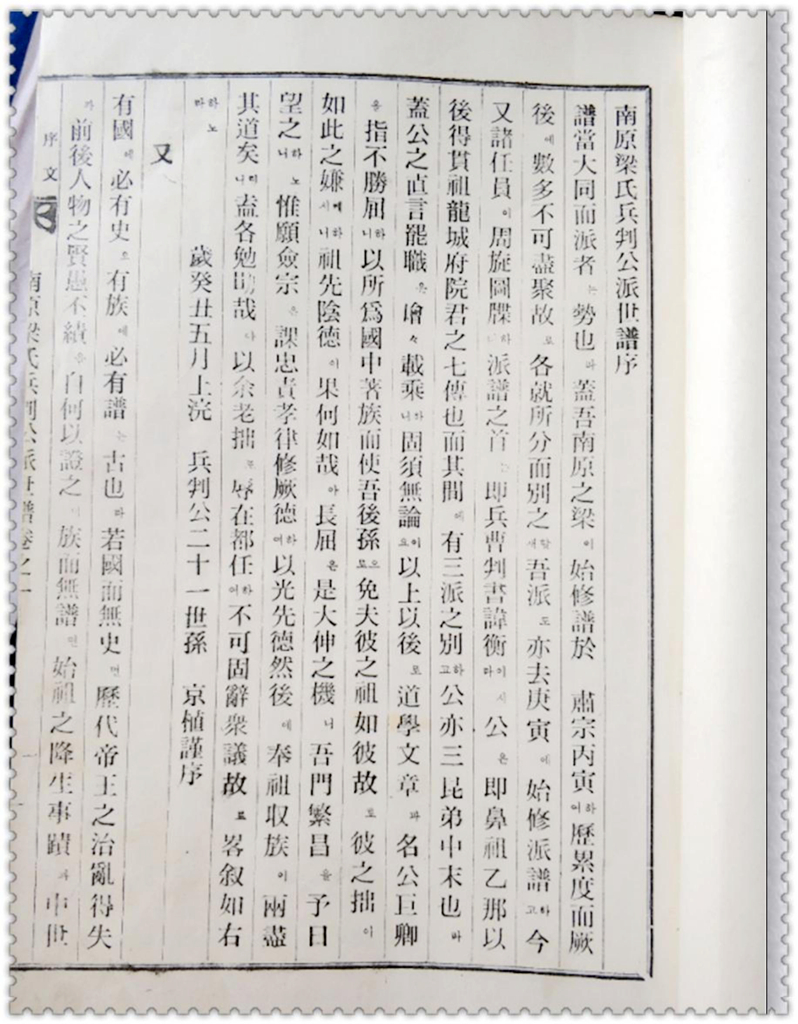 南原梁氏兵判公派世譜序
譜當大同而派者는勢也라蓋吾南原之梁이始修譜於 肅宗丙寅하여歷累度而厥
後에數多不可盡聚故로各就所分而別之새吾派도亦去庚寅에始修派譜하고今
又諸任員이周旋圖牒하派譜之首 即兵曹判書諱衡이시라公은即鼻祖乙那以
後得貫祖龍城府院君之七傳也而其間에有三派之別하고公亦三昆弟中末也라
蓋公之直言罷職은 載乘하니固須無論이요以上以後로道學文章과名公巨卿
을指不勝屈하니以所爲國中著族而使吾後孫으로免夫彼之祖如彼故로彼之拙이
如此之嫌 하니祖先陰德이果何如哉아長屈은是大伸之機니吾門繁昌을予日
望之하노니惟願僉宗은課忠責孝律修厥德하여以光先德然後에奉祖収族이兩盡
其道矣리니盍各勉勖哉 以余老拙로辱在都任하여不可固辭衆議故로畧叙如右
하노라
歲癸丑五月上浣 兵判公二十一世孫 京植謹序
又
有國에必有史요有族에必有譜는古也라若國而無史면歷代帝王之治亂得失
과前後人物之賢愚不績을自何以證之 族而無譜면始祖之降生事蹟과中世
序文
南原梁氏兵判公派世譜卷之一